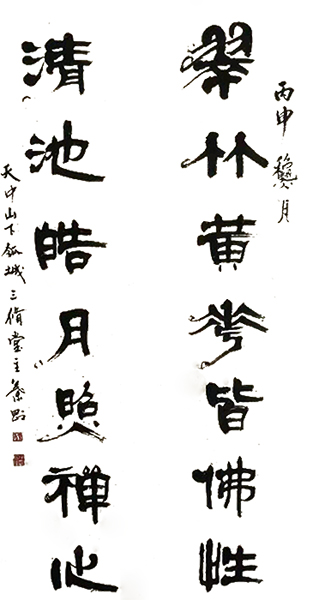 丙申龝月
翠竹黄花皆佛性
清池皓月照禪心
天中山下 城三脩堂主秦